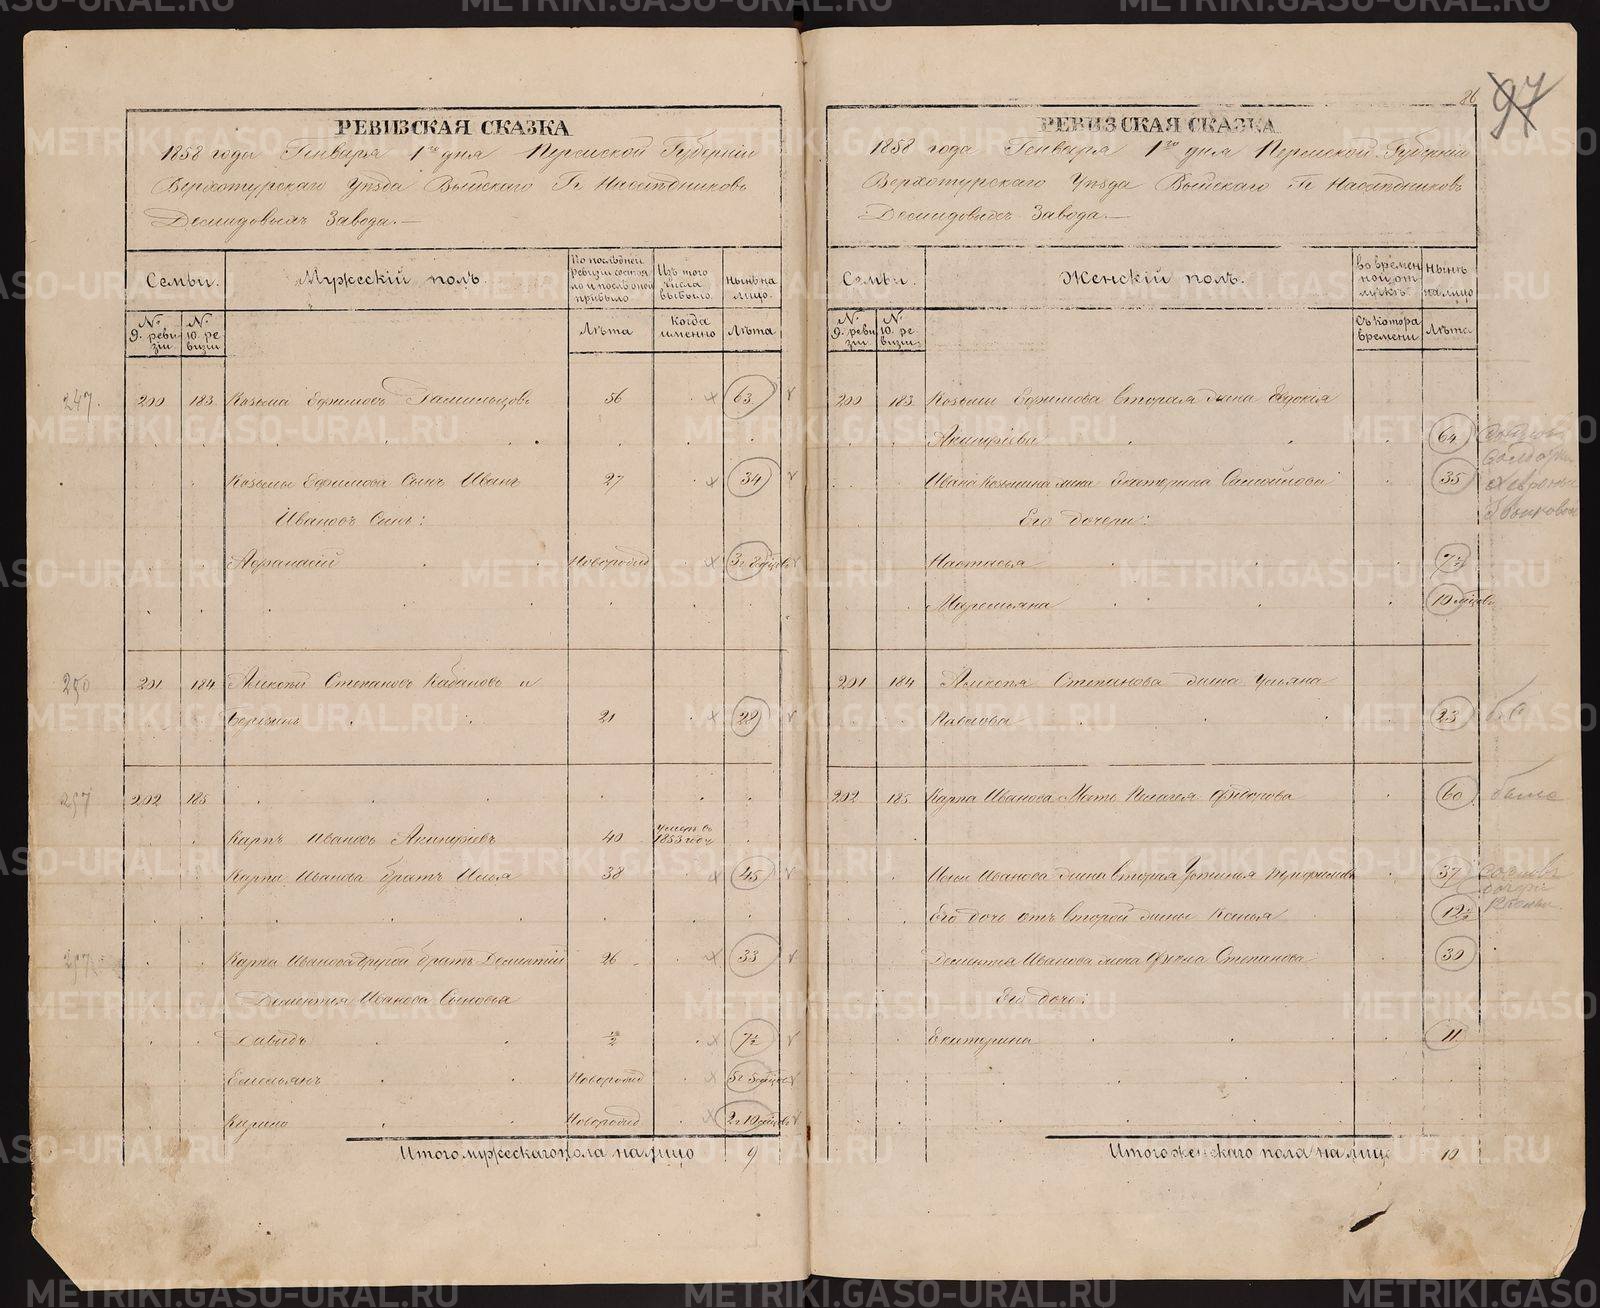 РЕВИЗСКАЯ СКАЗКА
1858 года Генваря 1го дня Пермской Губерніи
Верхотурскаго Уѣзда Выйскаго Гг. Наслѣдниковъ
Демидовыхъ Завода.—
Семьи.
Мужескій полъ.
По послѣдней ревизіи состояло и послѣ оной прибыло
Изъ того числа выбыло.
Нынѣ на лицо.
№ 9. ревизіи
№ 10. ревизіи
Лѣта
Когда именно
Лѣта
247. 200 183 Козьма Ефимовъ 56 63
Козьмы Ефимова Сынъ Иванъ 27 34
Ивановъ Сынъ:
Афанасій Новорожд 3г
250 201 184 Алексѣй Степановъ Кабановъ и
21 28
257 202 185
Карпъ Ивановъ Акинфіевъ 40 Умеръ въ 1853 году
Карпа Иванова братъ Илья 38 45
257 Карпа Иванова другой братъ Дементій 26 33
Дементія Иванова Сыновья
Давидъ 1/2 7½
Емельянъ Новорожд 5г
Кирило Новорожд 2г 10 мѣсяцовъ
Итого мужескаго пола на лицо 9
86
97
РЕВИЗСКАЯ СКАЗКА
1858 года Генваря 1го дня Пермской Губерніи
Верхотурскаго Уѣзда Выйскаго Гг. Наслѣдниковъ
Демидовыхъ Завода.—
Семьи.
Женскій полъ.
Во временной отлучкѣ.
Нынѣ на лицо
№ 9. ревизіи
№ 10. ревизіи
Съ котора времени
Лѣта
200 183 Козьмы Ефимова вторая жена Евдокія
Акинфіева 64
Ивана Козьмина жена Екатерина Самойлова 35
Его дочери:
Настасья 7½
Маремьяна 10 мѣсяцовъ
201 184 Алексѣя Степанова жена Ульяна
23
202 185 Карпа Иванова Мать Пелагея Федорова 60
Ильи Иванова жена вторая Устинья Трифонова 37
Его дочь отъ второй жены Ксенья 12½
Дементья Иванова жена Фекла Степанова 30
Его дочь:
Екатерина 11
Итого женскаго пола на лицо 10
METRIKI.GASO-URAL.RU